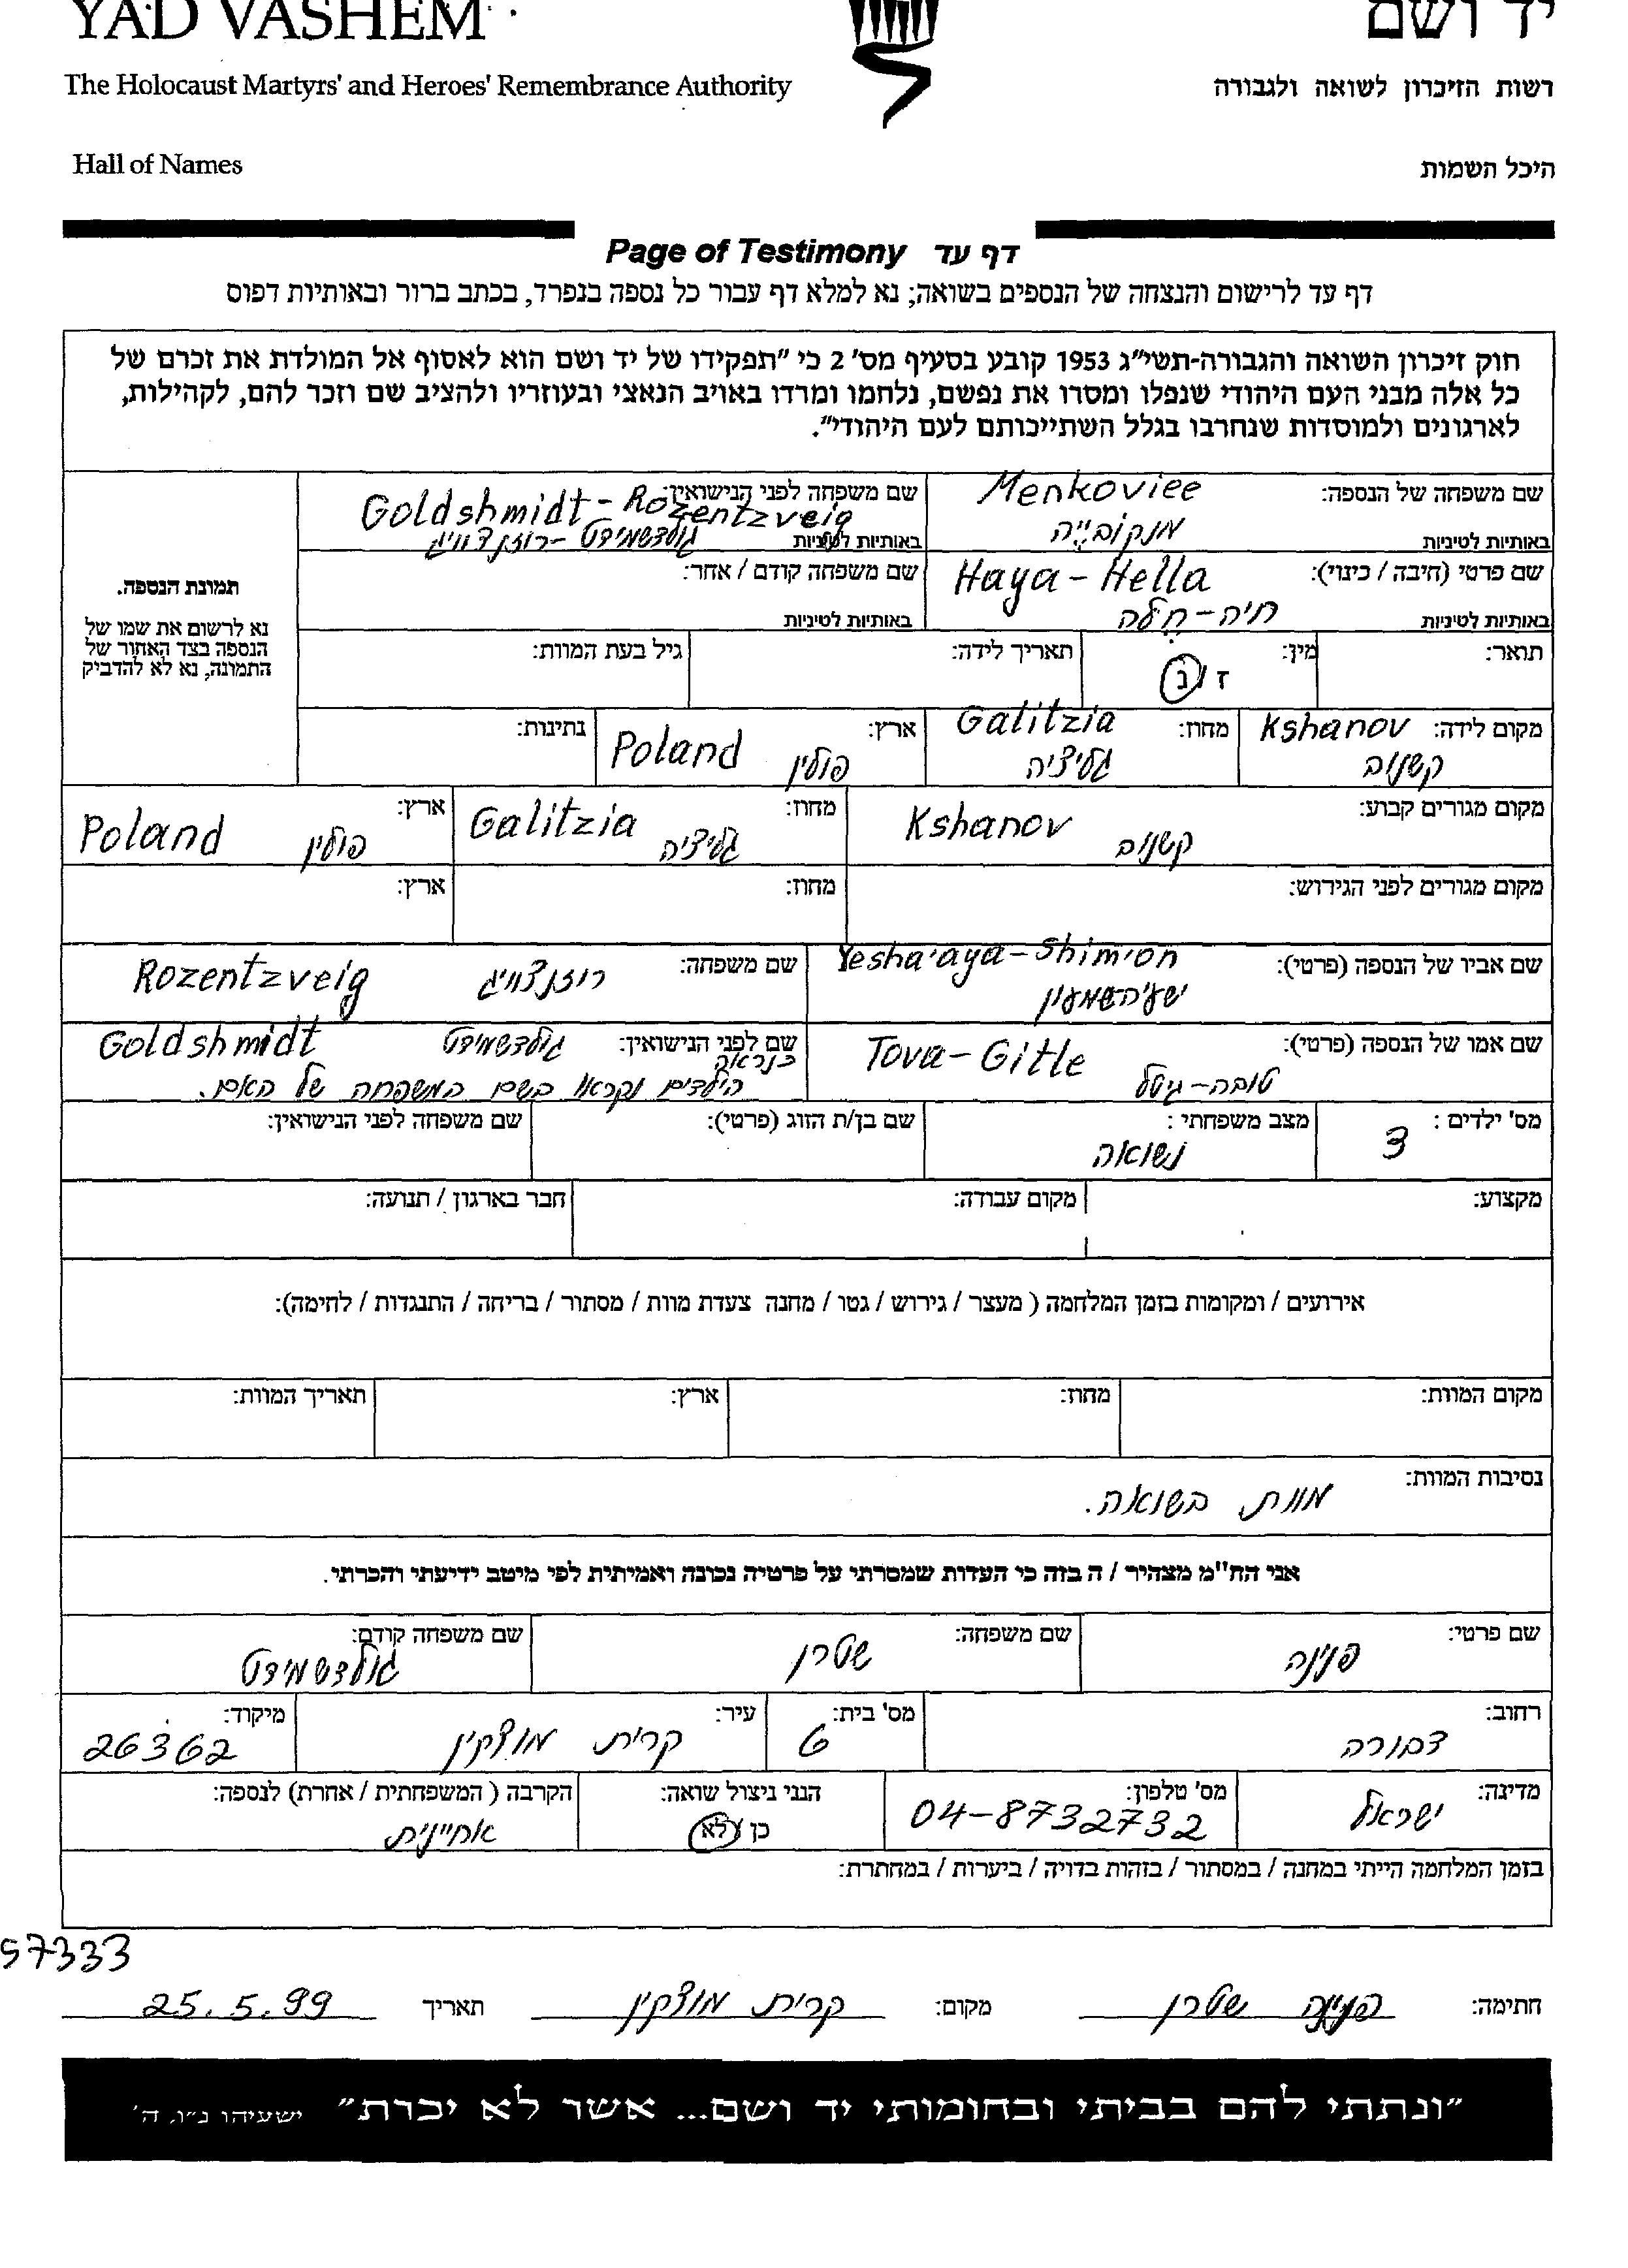 YAD VASHEM יד ושם
The Holocaust Martyrs' and Heroes' Remembrance Authority רשות הזיכרון לשואה ולגבורה
Hall of Names היכל השמות
Page of Testimony דף עד
דף עד לרישום והנצחה של הנספים בשואה; נא למלא דף עבור כל נספה בנפרד, בכתב ברור ובאותיות דפוס
חוק זיכרון השואה והגבורה-תשי"ג 1953 קובע בסעיף מס' 2 כי "תפקידו של יד ושם הוא לאסוף אל המולדת את זכרם של
כל אלה מבני העם היהודי שנפלו ומסרו את נפשם, נלחמו ומרדו באויב הנאצי ובעוזריו ולהציב שם וזכר להם, לקהילות,
לארגונים ולמוסדות שנחרבו בגלל השתייכותם לעם היהודי".
שם משפחה של הנספה: Menkoviee
באותיות לטיניות מנקוביֶיה
שם משפחה לפני הנישואין: Goldshmidt - Rozentzveig
באותיות לטיניות גולדשמידט - רוזנצווייג
תמונת הנספה.
נא לרשום את שמו של
הנספה בצד האחור של
התמונה, נא לא להדביק
שם פרטי (חיבה / כינוי): Haya - Hella
באותיות לטיניות חיה - חלה
שם משפחה קודם / אחר:
באותיות לטיניות
תואר: מין: ז / נ תאריך לידה: גיל בעת המוות:
מקום לידה: Kshanov קשנוב מחוז: Galitzia גליציה ארץ: Poland פולין נתינות:
מקום מגורים קבוע: Kshanov קשנוב מחוז: Galitzia גליציה ארץ: Poland פולין
מקום מגורים לפני הגירוש: מחוז: ארץ:
שם אביו של הנספה (פרטי): Yesha'aya - Shim'on ישעיה שמעון שם משפחה: רוזנצווייג Rozentzveig
שם אמו של הנספה (פרטי): Tova - Gitle טובה - גיטל שם לפני הנישואין: גולדשמידט Goldshmidt
כנראה הילדים נקראו בשם המשפחה של האם.
מס' ילדים : 3 מצב משפחתי : נשואה שם בן/ת הזוג (פרטי): שם משפחה לפני הנישואין:
מקצוע: מקום עבודה: חבר בארגון / תנועה:
אירועים / ומקומות בזמן המלחמה ( מעצר / גירוש / גטו / מחנה צעדת מוות / מסתור / בריחה / התנגדות / לחימה):
מקום המוות: מחוז: ארץ: תאריך המוות:
נסיבות המוות: מוות בשואה.
אני הח"מ מצהיר / ה בזה כי העדות שמסרתי על פרטיה נכונה ואמיתית לפי מיטב ידיעתי והכרתי.
שם פרטי: פנינה שם משפחה: שטרן שם משפחה קודם: גולדשמידט
רחוב: דבורה מס' בית: 6 עיר: קרית מוצקין מיקוד: 26362
מדינה: ישראל מס' טלפון: 04-8732732 הנני ניצול שואה: כן / לא הקרבה ( המשפחתית / אחרת) לנספה: אחיינית
בזמן המלחמה הייתי במחנה / במסתור / בזהות בדויה / ביערות / במחתרת:
57333
חתימה: פנינה שטרן מקום: קרית מוצקין תאריך 25.5.99
"ונתתי להם בביתי ובחומותי יד ושם... אשר לא יכרת" ישעיהו נ"ו, ה'